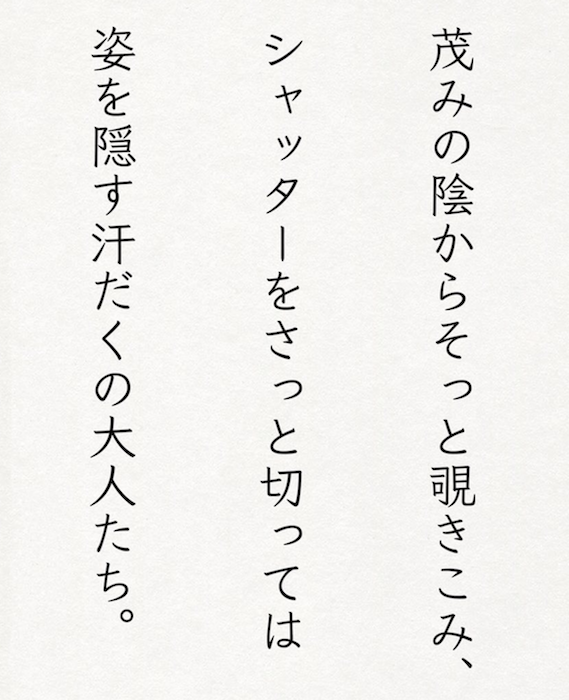 茂みの陰からそっと覗きこみ、
シャッターをさっと切っては
姿を隠す汗だくの大人たち。